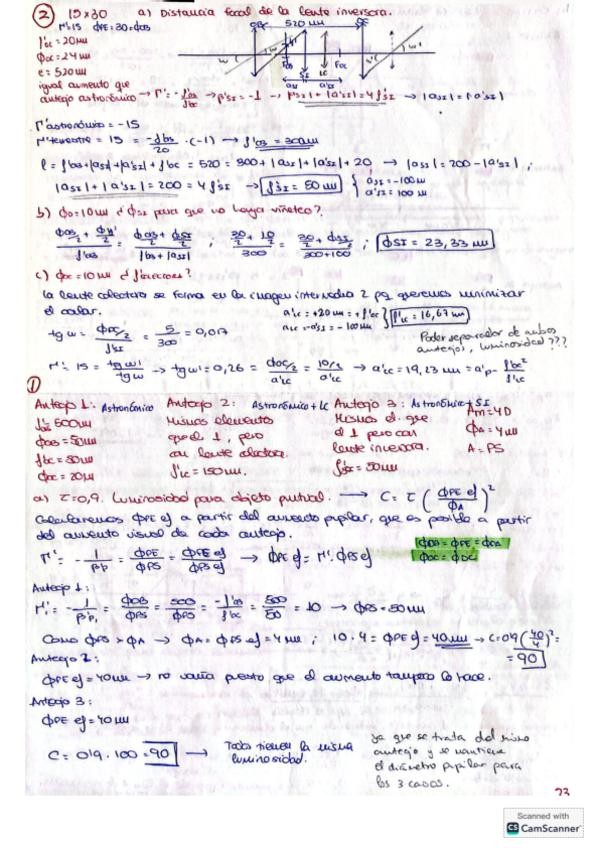 ② 15x30 a) Distancia focal de la lente inversora.
M'=15 ϕPE=30=ϕOB
520 mm
f'oc = 20mm
ϕoc = 24mm
e = 520mm
igual aumento que
anteojo astronómico → Γ' = - f'ob/f'oc → β'SI = -1 → |aSI| + |a'SI| = 4f'SI → |aSI| = |a'SI|
Γ'astronómico = -15
Γ'terrestre = 15 = -f'ob/20 · (-1) → f'ob = 300mm
l = f'ob + |aSI| + |a'SI| + f'oc = 520 = 300 + |aSI| + |a'SI| + 20 → |aSI| = 200 - |a'SI| ;
|aSI| + |a'SI| = 200 = 4f'SI → f'SI = 50mm { aSI = -100mm
a'SI = 100mm
b) ϕD=10mm ¿ϕSI para que no haya viñeteo?
; 30/2 + 10/2 / 300 = 30/2 + ϕSI/2 / 300+100 ; ϕSI = 23,33 mm
c) ϕDC = 10mm ¿f'colectora?
la lente colectora se forma en la imagen intermedia 2 pq queremos minimizar
el color.
a'LC = +20mm = +f'oc
aLC = -a'SI = -100mm } f'LC = 16,67mm
tg w = = 5/300 = 0,017
Poder separador de ambos
anteojos, luminosidad???
M' = 15 = tgw'/tgw → tgw' = 0,26 = → a'LC = 19,23mm = a'p - f'oc²/f'LC
①
Anteojo 1: Astronómico Anteojo 2: Astronómico + LC Anteojo 3: Astronómico + SI
f'ob = 500mm Mismos elementos Mismos el. que Am = 4D
ϕOB = 50mm que el 1, pero el 1 pero con ϕA = 4mm
f'oc = 50mm con lente colectora. lente inversora. A = PS
ϕoc = 20mm f'LC = 150mm. f'SI = 50mm
a) τ = 0,9. Luminosidad para objeto puntual. → C = τ (ϕPE ef / ϕA)²
Calcularemos ϕPE ef a partir del aumento pupilar, que es posible a partir
del aumento visual de cada anteojo.
Γ' = - 1/β'p = ϕPE/ϕPS = ϕPE ef/ϕPS ef → ϕPE ef = M'·ϕPS ef
ϕOB = ϕPE = ϕDA
ϕOC = ϕDC
Anteojo 1:
M' = - 1/β'p = ϕOB/ϕPS = 500/ϕPS = -f'ob/f'oc = 500/50 = 10 → ϕPS = 50mm
Como ϕPS > ϕA → ϕA = ϕPS ef = 4mm ; 10·4 = ϕPE ef = 40mm → C = 0,9 (40/4)² =
= 90
Anteojo 2:
ϕPE ef = 40mm → no varía puesto que el aumento tampoco lo hace.
Anteojo 3:
ϕPE ef = 40mm
C = 0,9 · 100 = 90 → Todos tienen la misma
luminosidad.
ya que se trata del mismo
anteojo y se mantiene
el diámetro pupilar para
los 3 casos.
23
Scanned with
CS CamScanner